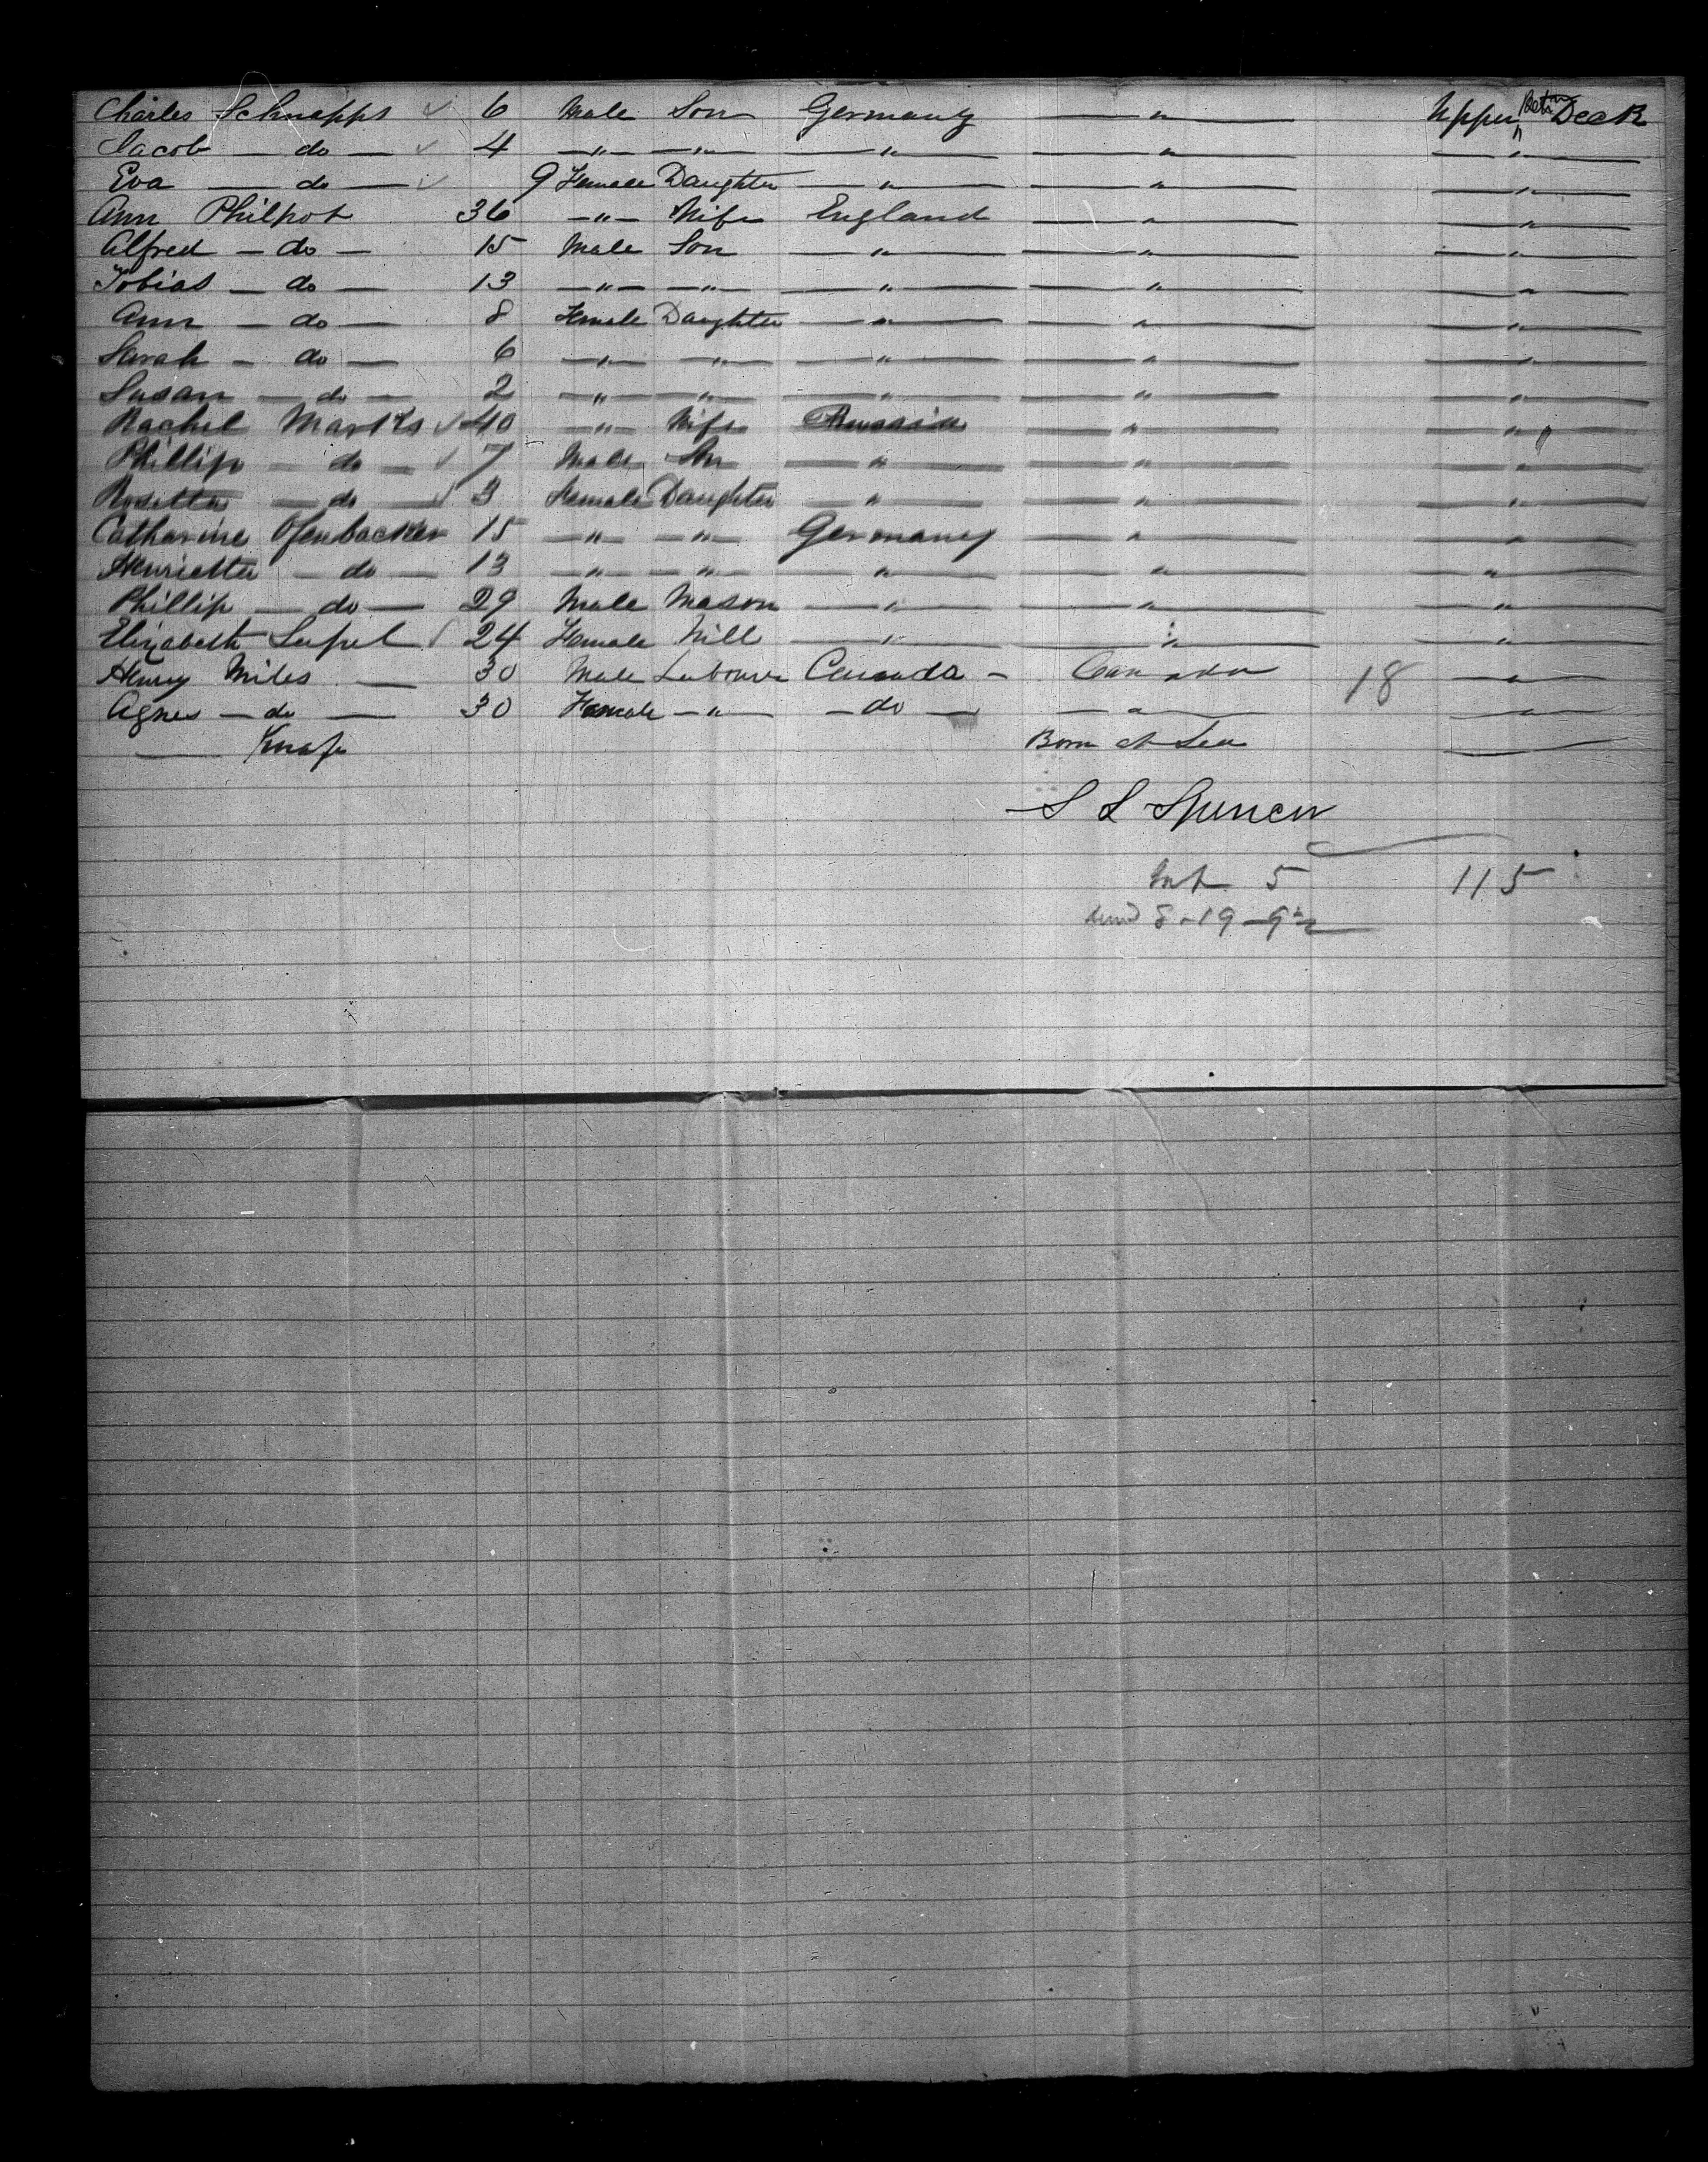 Charles Schnapps ✓ 6 Male Son Germany — " — Upper Betn Deck
Jacob — do — ✓ 4 — " — — " — — " — — " — — " —
Eva — do — ✓ 9 Female Daughter — " — — " — — " —
Ann Philpot 36 — " — Wife England — " — — " —
Alfred — do — 15 Male Son — " — — " — — " —
Tobias — do — 13 — " — — " — — " — — " — — " —
Ann — do — 8 Female Daughter — " — — " — — " —
Sarah — do — 6 — " — — " — — " — — " — — " —
Susan — do — 2 — " — — " — — " — — " — — " —
Rachel Marks ✓ 40 — " — Wife — " — — " —
Phillip — do — ✓ 7 Male Son — " — — " — — " —
Rosetta — do — ✓ 3 Female Daughter — " — — " — — " —
Catharine Ofenbacker 15 — " — — " — Germany — " — — " —
Henrietta — do — 13 — " — — " — — " — — " — — " —
Phillip — do — 29 Male Mason — " — — " — — " —
Elizabeth ✓ 24 Female — " — — " — — " —
Henry Miles — 30 Male Labourer Canada — Canada 18 — " —
Agnes — do — 30 Female — " — — do — — " — — " —
— Knap Born at Sea —
S L Spencer
5 115
8-19-92